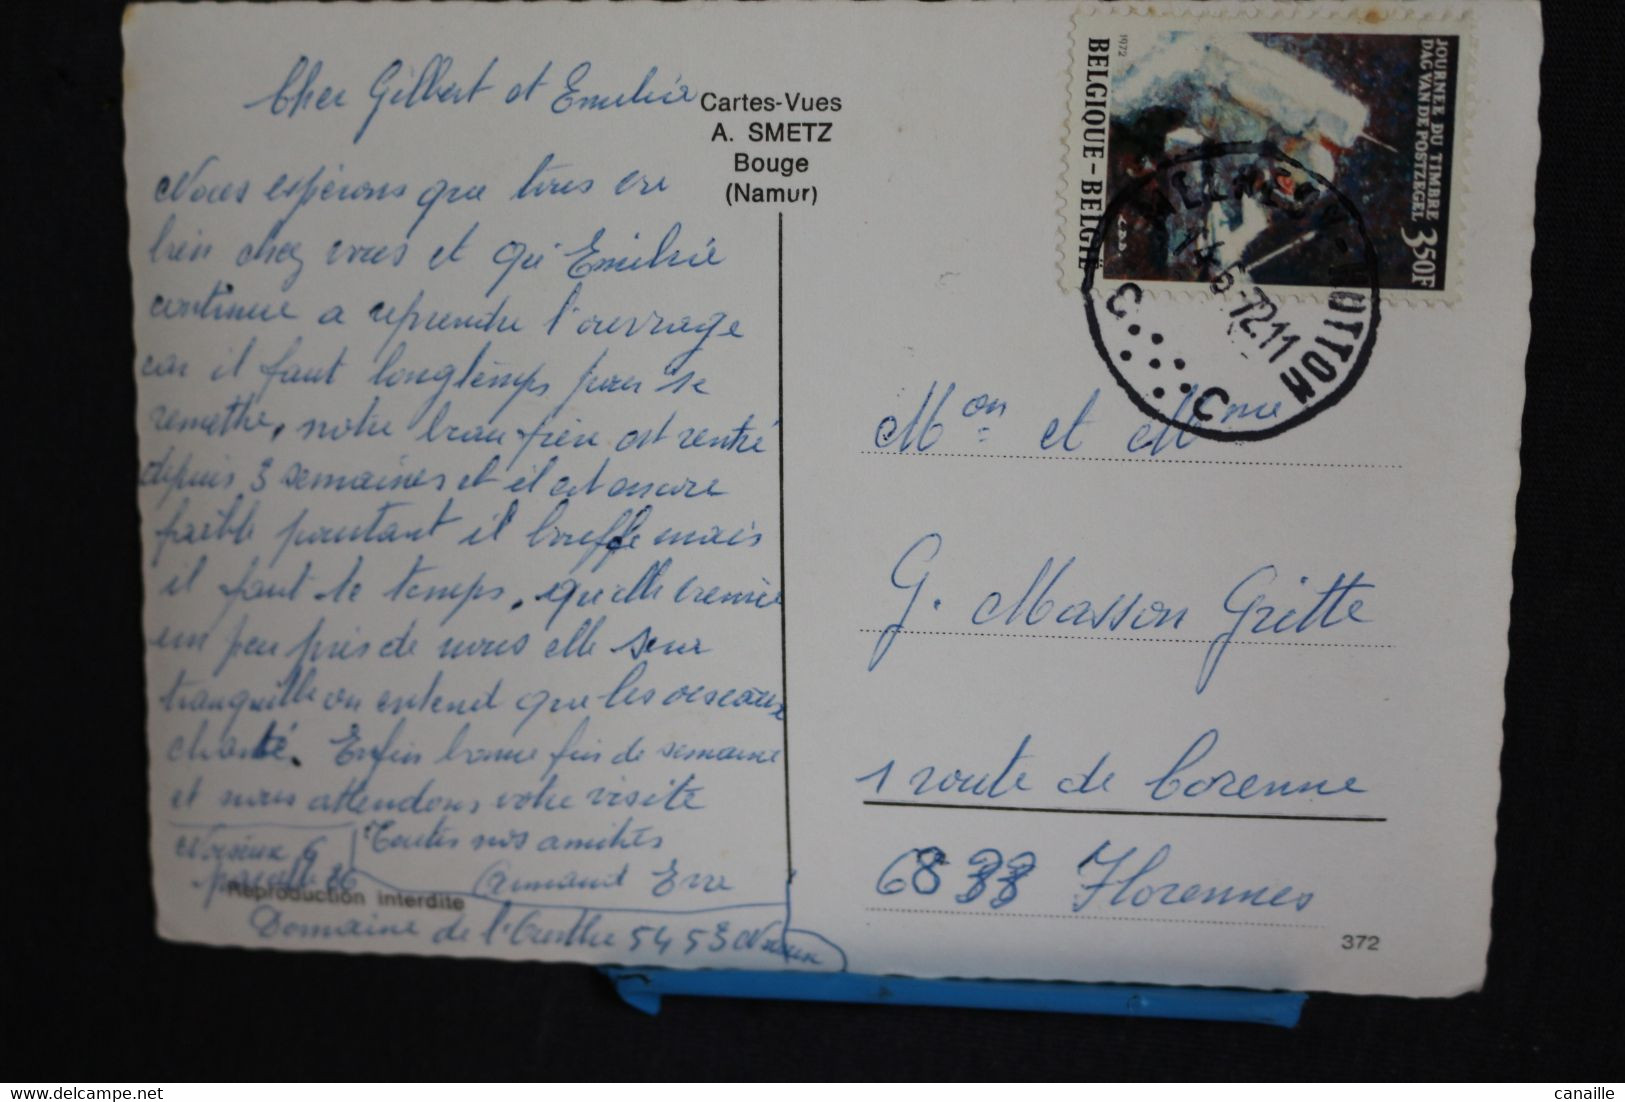 Cher Gilbert et Emilie
Nous espérons que tous va
bien chez vous et qu'Emilie
continue a reprendre l'ouvrage
car il faut longtemps pour se
remettre, notre beau frère est rentré
depuis 3 semaines et il est encore
faible pourtant il bouffe mais
il faut le temps, qu'elle vienne
un peu près de nous elle sera
tranquille on entend que les oiseaux
chanté. Enfin bonne fin de semaine
et nous attendons votre visite
Toutes nos amitiés
Armand
Noiseux
parcelle
Domaine de l'Ourthe 5453 Noiseux
Reproduction interdite
Cartes-Vues
A. SMETZ
Bouge
(Namur)
JOURNEE DU TIMBRE
DAG VAN DE POSTZEGEL
3,50F
BELGIQUE-BELGIË
1972
MELREUX-HOTTON
14-6-72.11
C C
Mon et Mme
G. Masson Gritte
1 route de Corenne
6838 Florennes
372
canaille